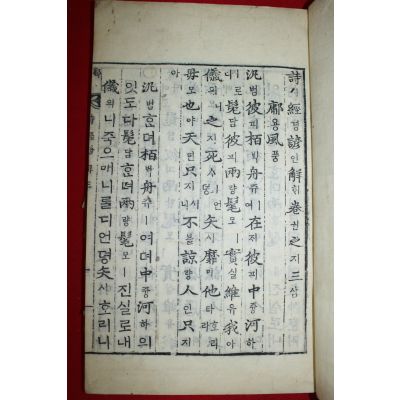 詩시經경諺언解ᄒᆡ卷권之지三삼
鄘용風풍
汎범彼피栢ᄇᆡᆨ舟쥬ㅣ여在ᄌᆡ彼피中듕河하
로다髧담彼피兩량髦모ㅣ實실維유我아
儀의니之지死ᄉᆞ언뎡矢시靡미他타호리라
母모也야天텬只지시니不블諒량人인只지
아
汎범ᄒᆞᆫ뎌栢ᄇᆡᆨ舟쥬ㅣ여뎌中듕河하의
잇도다髧담ᄒᆞᆫ뎌兩량髦모ㅣ진실로내
儀의니죽으매니를디언뎡矢시호리니